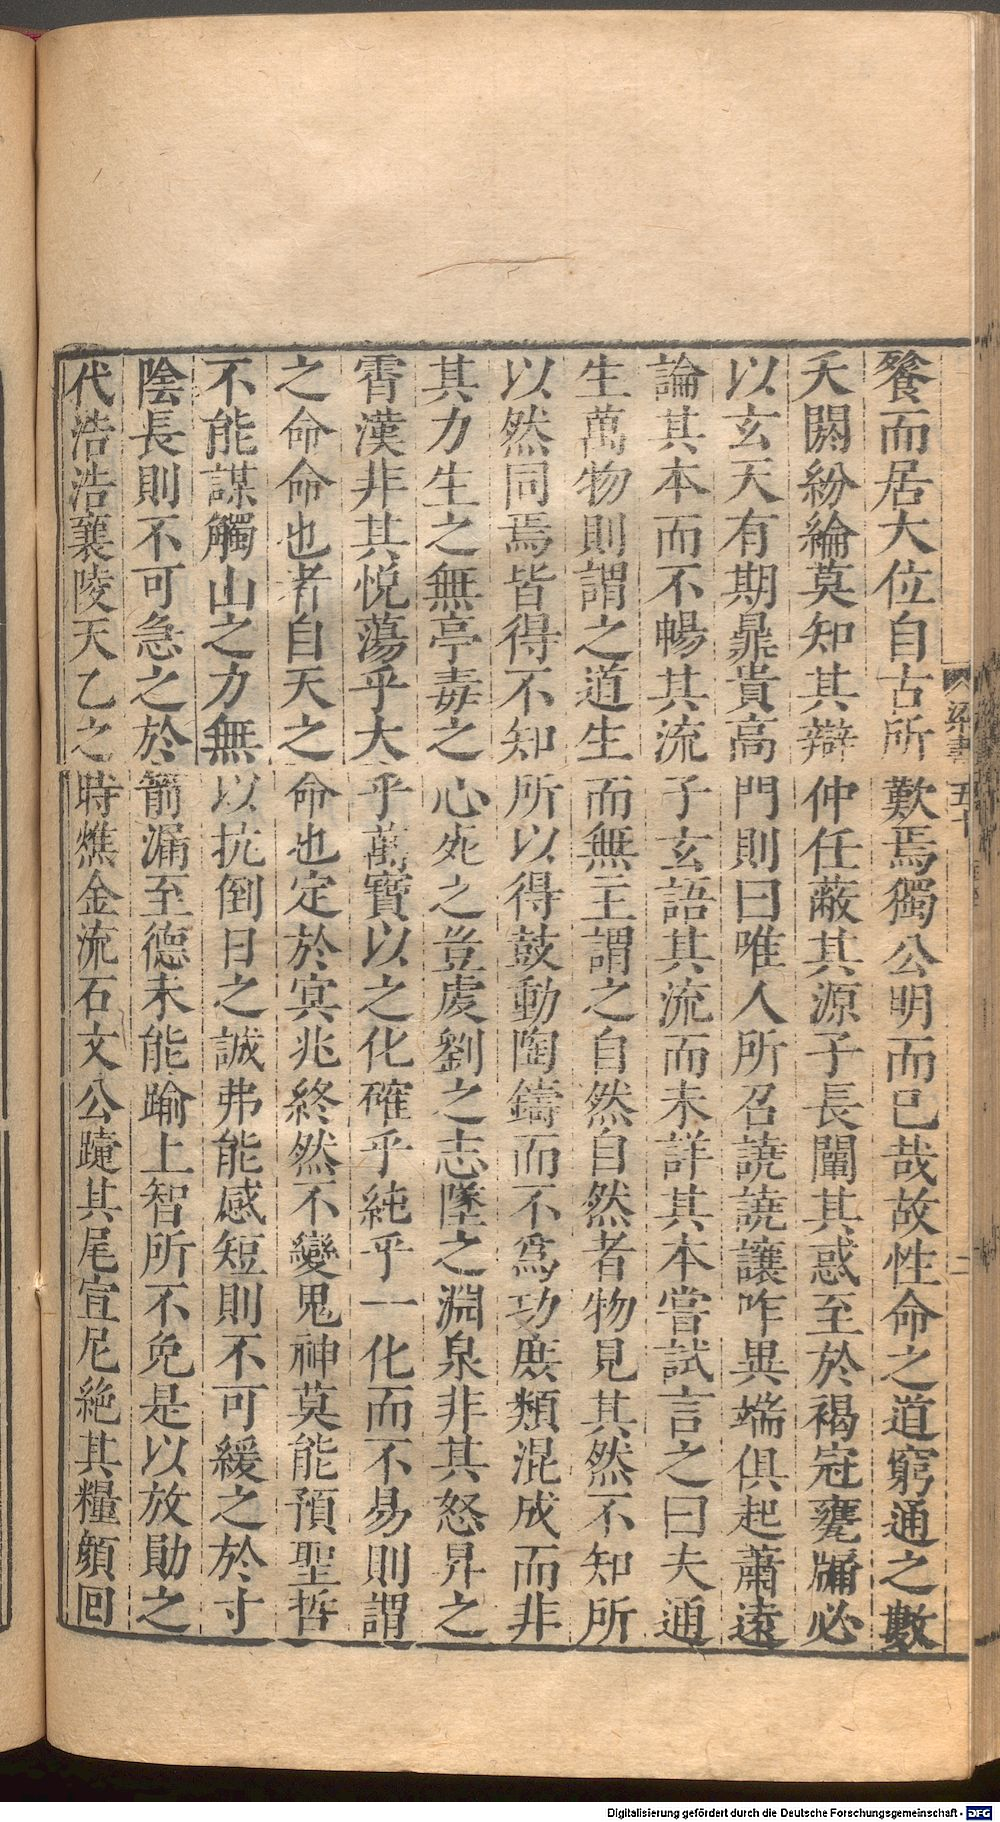 餮而居大位自古所歎焉獨公明而已哉故性命之道窮通之數
夭閼紛綸莫知其辯仲任蔽其源子長闡其惑至於褐冠甕牖必
以玄天有期鼎貴高門則曰唯人所召譊譊讓咋異端俱起蕭遠
論其本而不暢其流子玄語其流而未詳其本嘗試言之曰夫通
生萬物則謂之道生而無主謂之自然自然者物見其然不知所
以然同焉皆得不知所以得鼓動陶鑄而不爲功庶類混成而非
其力生之無亭毒之心死之豈虔劉之志墜之淵泉非其怒昇之
霄漢非其悅蕩乎大乎萬寶以之化確乎純乎一化而不易則謂
之命命也者自天之命也定於冥兆終然不變鬼神莫能預聖哲
不能謀觸山之力無以抗倒日之誠弗能感短則不可緩之於寸
陰長則不可急之於箭漏至德未能踰上智所不免是以放勛之
代浩浩襄陵天乙之時燋金流石文公躓其尾宣尼絶其糧顔回
梁書五十
二
Digitalisierung gefördert durch die Deutsche Forschungsgemeinschaft - DFG